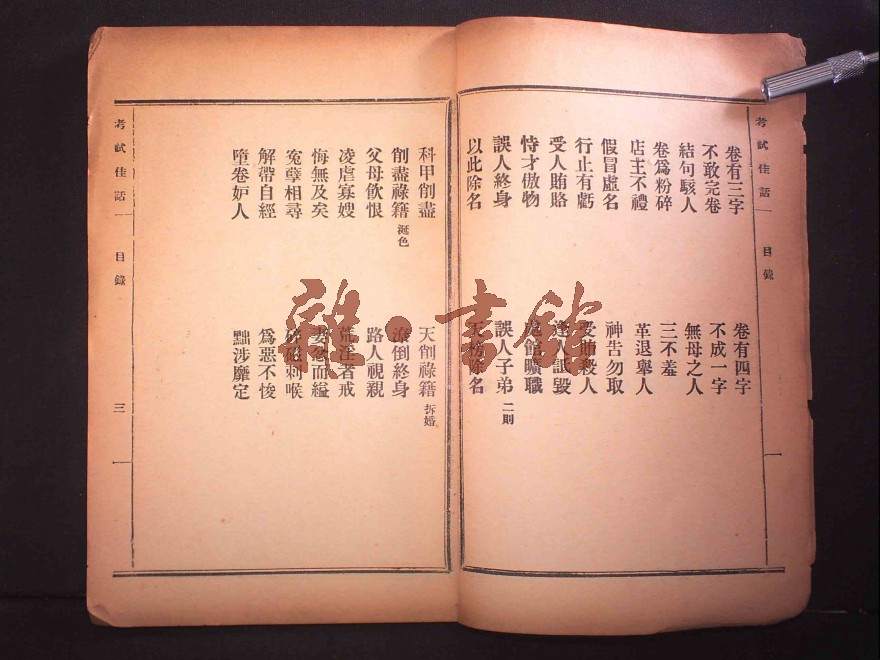 考試佳話 目錄
卷有三字 卷有四字
不敢完卷 不成一字
結句駭人 無母之人
卷爲粉碎 三不羞
店主不禮 革退舉人
假冒虛名 神告勿取
行止有虧 受賄殺人
受人賄賂 逢人詆毀
恃才傲物 處館曠職
誤人終身 誤人子弟 二則
以此除名 天榜除名
科甲削盡 天削祿籍 拆婚
削盡祿籍 涎色 潦倒終身
父母飲恨 路人視親
凌虐寡嫂 荒淫者戒
悔無及矣 妻忿而縊
冤孽相尋 碎磁刺喉
解帶自經 爲惡不悛
墮卷妒人 黜涉靡定
考試佳話 目錄 三
雜·書館